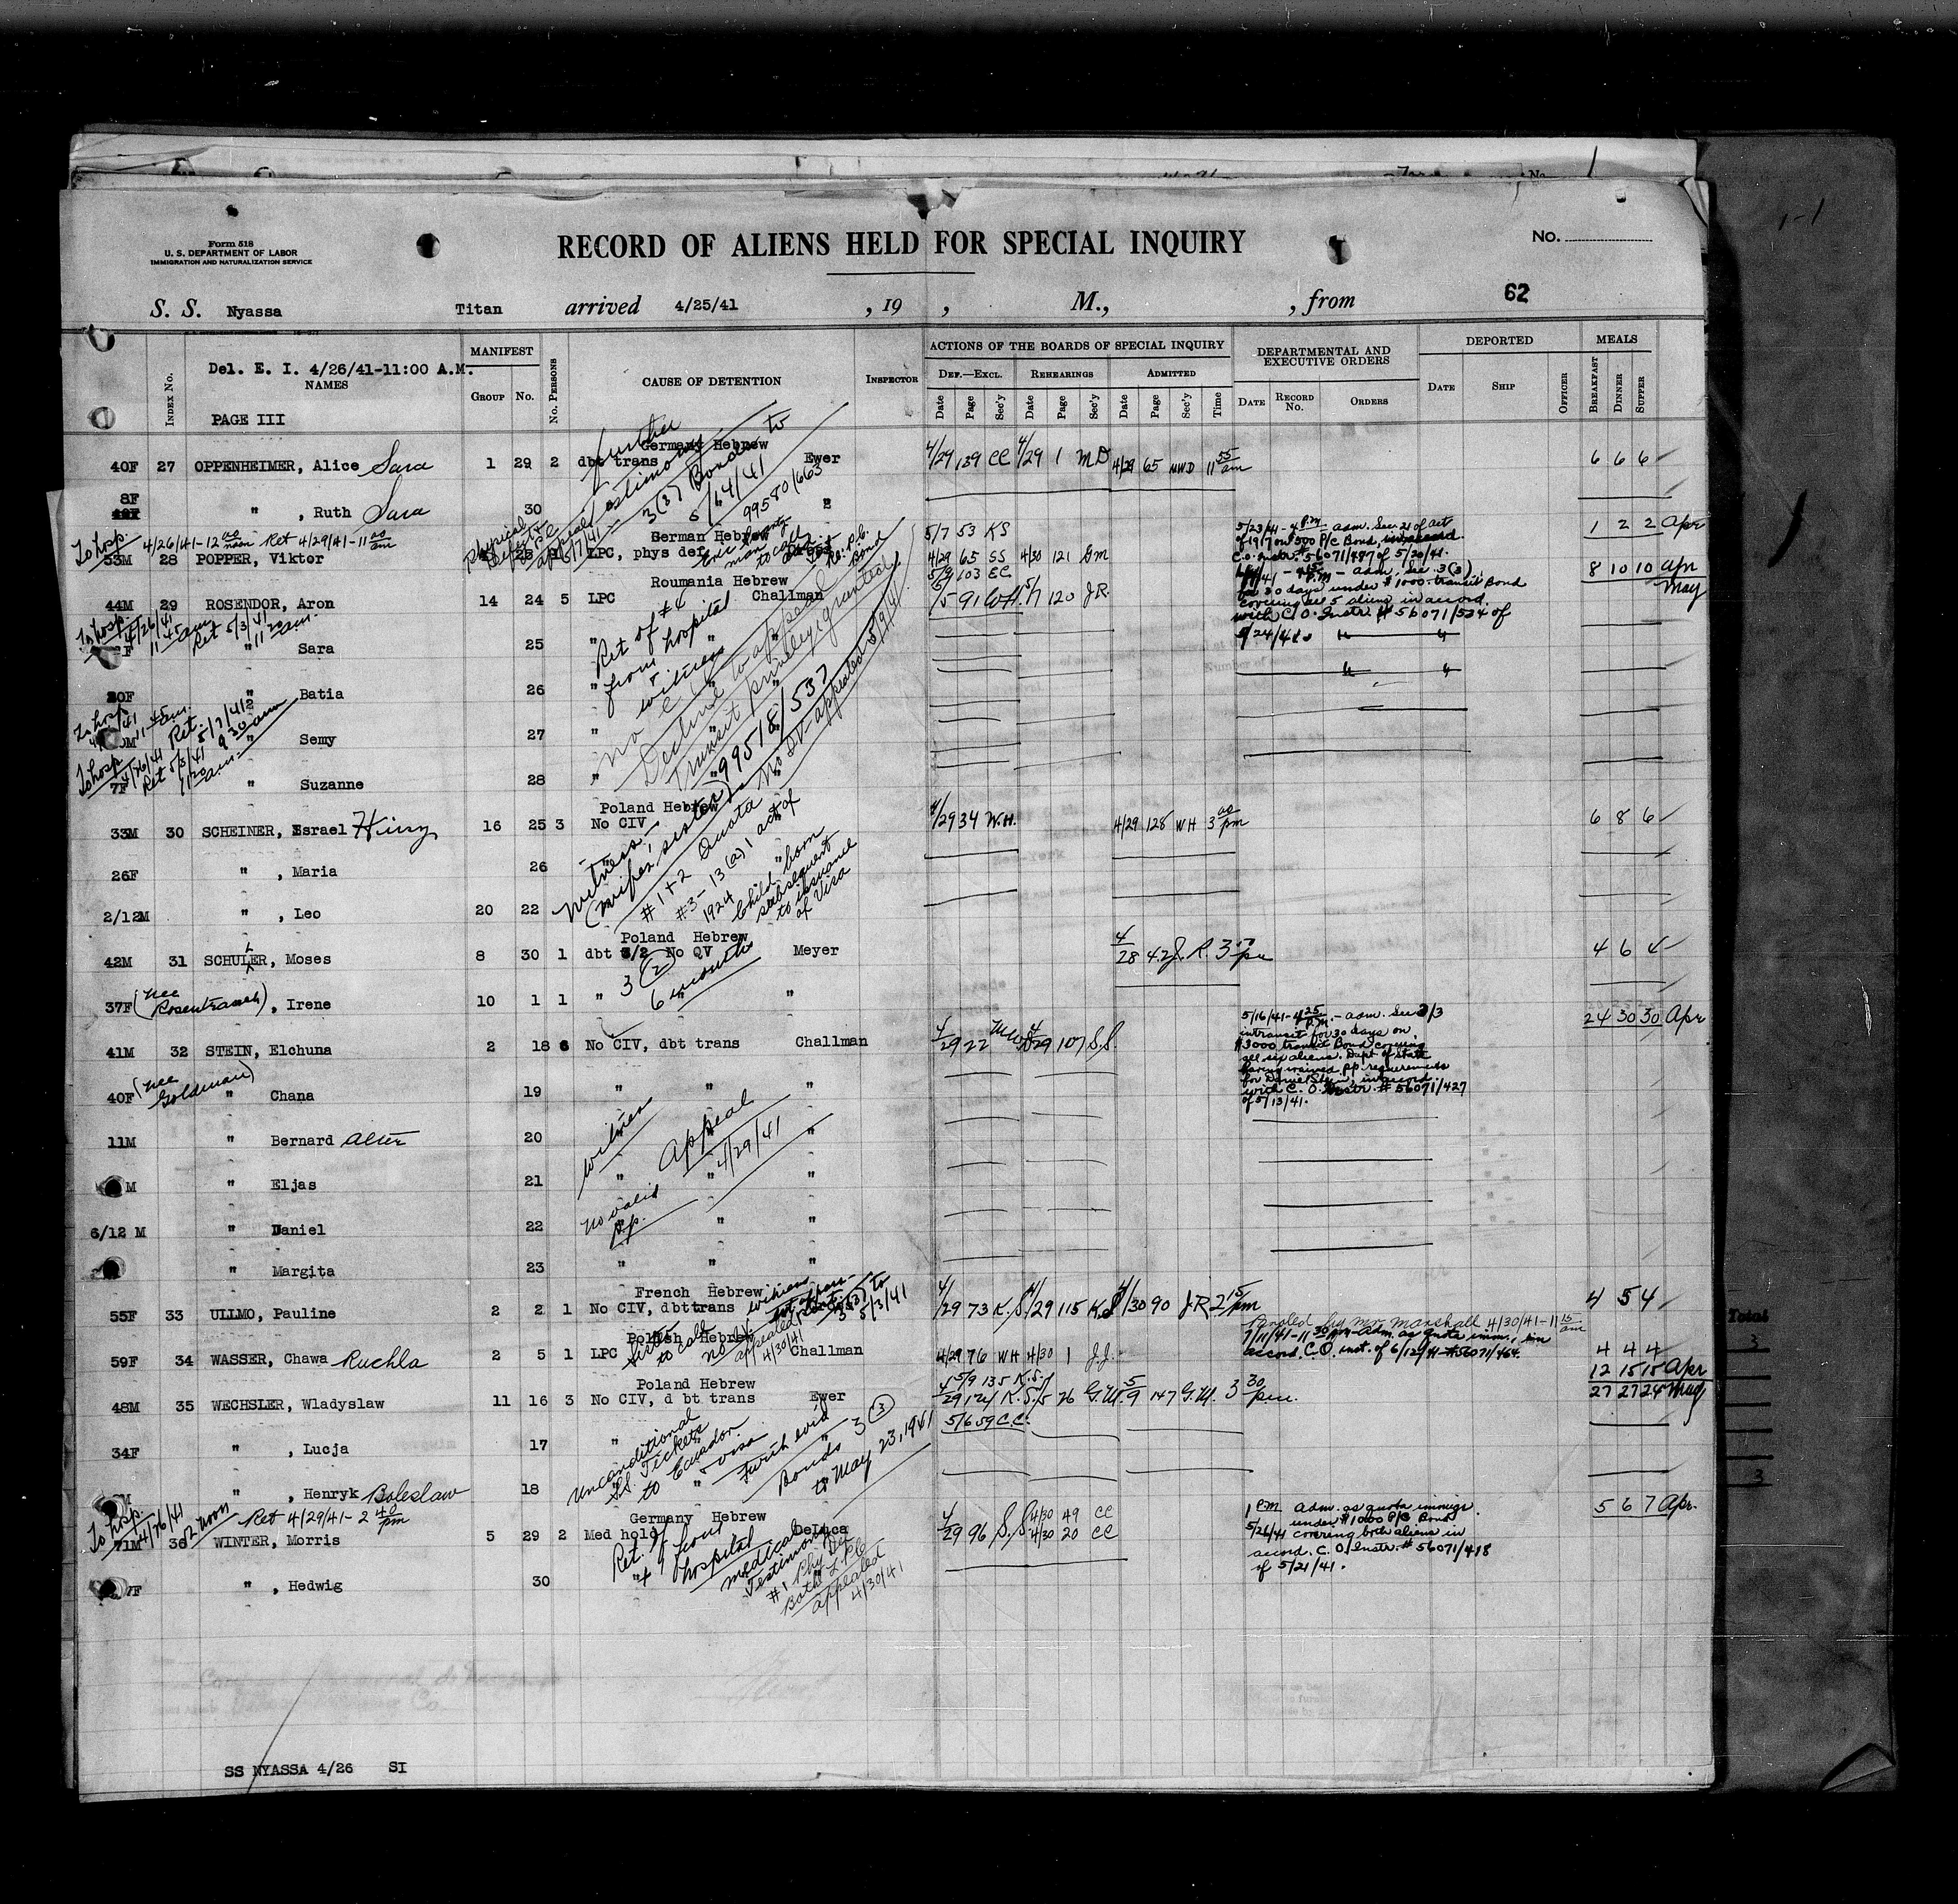 Form 518
U. S. DEPARTMENT OF LABOR
IMMIGRATION AND NATURALIZATION SERVICE
RECORD OF ALIENS HELD FOR SPECIAL INQUIRY
No.
S. S. Nyassa Titan arrived 4/25/41 , 19 , M., , from 62
Del. E. I. 4/26/41-11:00 A.M.
NAMES
PAGE III
INDEX No.
MANIFEST
GROUP No.
No. PERSONS
CAUSE OF DETENTION
INSPECTOR
ACTIONS OF THE BOARDS OF SPECIAL INQUIRY
DEF.—EXCL. REHEARINGS ADMITTED
Date Page Sec'y Date Page Sec'y Date Page Sec'y Time
DEPARTMENTAL AND EXECUTIVE ORDERS
DATE RECORD No. ORDERS
DEPORTED
DATE SHIP OFFICER
MEALS
BREAKFAST DINNER SUPPER
further testimony 3(3) Bonds to 5/14/41
99580/663
Germany Hebrew
40F 27 OPPENHEIMER, Alice Sara 1 29 2 dbt trans Ewer 4/29 139 CC 4/29 1 MD 4/29 65 MWD 11 55 am 6 6 6
8F " , Ruth Sara 30 "
To hosp. 4/26/41-12 00 noon Ret 4/29/41-11 00 am
German Hebrew
53M 28 POPPER, Viktor 25 1 LPC, phys def
5/7 53 KS
4/29 65 SS 4/30 121 DM
5/23/41-4 P.M. adm. Sec 21 of act of 1917 on 500 P/C Bond,
C.O. Instr. # 56071/487 of 5/20/41.
1 2 2 Apr
8 10 10 Apr
May
Roumania Hebrew
44M 29 ROSENDOR, Aron 14 24 5 LPC Challman
5/9 103 EC
5/5 91 WH 5/7 120 J.R.
adm. Sec. 3(3)
for 30 days under $1000. transit Bond
covering all 5 aliens in accord
with C.O. Instr. # 56071/534 of
5/24/41.
To hosp 4/26/41 11 45 am Ret 5/3/41 11 20 am
" Sara 25 " "
20F " Batia 26 "
Ret of #4 from hospital + witness
To hosp 11 45 am. Ret. 5/7/41 9 30 am
" Semy 27 "
To hosp 4/26/41 Ret 5/3/41 11 20 am
7F " Suzanne 28 "
Decline to appeal
Transit privilege granted
99518/537
Poland Hebrew
33M 30 SCHEINER, Israel Hirry 16 25 3 No CIV 4/29 34 W.H. 4/29 128 WH 3 00 pm 6 8 6
26F " , Maria 26
2/12M " , Leo 20 22
Witness - (wife's sister)
#1+2 Quota No IV-appealed
#3- 13(a)1 act of 1924
Child born subsequent to issuance of Visa
Poland Hebrew
42M 31 SCHULER, Moses 8 30 1 dbt 3/2 No QV Meyer 4/28 42 J.R. 3 pm 4 6 4
3(2) 6 months
37F (nee Rosentrauch) , Irene 10 1 1 " "
41M 32 STEIN, Elchuna 2 18 6 No CIV, dbt trans Challman 4/29 22 MWD 4/29 107 S.S.
24 30 30 Apr
5/16/41-4 25 P.M. - adm. Sec 3/3
intransit for 30 days on
$3000 transit Bond covering
all six aliens. Dept of State
having waived pp. requirements
for Daniel Stein, in accord.
with C. O. Instr. # 56071/427
of 5/13/41.
40F (nee Goldman) " Chana 19 " " "
11M " Bernard Alter 20 " "
M " Eljas 21 " " "
6/12 M " Daniel 22 " "
" Margita 23 " " "
witness
Appeal 4/29/41
no valid p.p.
French Hebrew
55F 33 ULLMO, Pauline 2 2 1 No CIV, dbt trans 4/29 73 K.S. 4/29 115 K.S. 4/30 90 J.R. 2 15 pm 4 5 4
witness
3(3) to 5/3/41
Paroled by Mr Marshall 4/30/41-11 15 am
Polish Hebrew
59F 34 WASSER, Chawa Ruchla 2 5 1 LPC Challman 4/29 76 WH 4/30 1 J.J. 4 4 4
appealed 4/30/41
7/11/41-11 30 Adm. as quota imm. in
accord. C.O. inst. of 6/12/41 #56071/464.
12 15 15 Apr
27 27 24 May
Poland Hebrew
48M 35 WECHSLER, Wladyslaw 11 16 3 No CIV, d bt trans Ewer
5/9 135 K.S.
4/29 121 K.S. 5/5 26 G.M. 5/9 147 G.M. 3 30 p.m.
5/6 59 C.C.
34F " , Lucja 17 "
" , Henryk Boleslaw 18 "
Unconditional S.S. Tickets to Ecuador + visa
Furth evid
Bonds 3(3) to May 23, 1941
To hosp. 4/26/41 12 noon Ret 4/29/41-2 40 pm
Germany Hebrew
71M 36 WINTER, Morris 5 29 2 Med hold DeLuca 4/29 96 S.S. 4/30 49 CC
4/30 20 CC
5 6 7 Apr.
1 P.M. adm. as quota immigr.
under $1000 P/C Bond
5/26/41 covering both aliens in
accord. C.O. Instr. # 56071/418
of 5/21/41.
7F " , Hedwig 30 "
Ret. of from hospital
medical Testimony
#1 Phy Def
Both L.P.C.
appealed 4/30/41
Total
3
3
SS NYASSA 4/26 SI